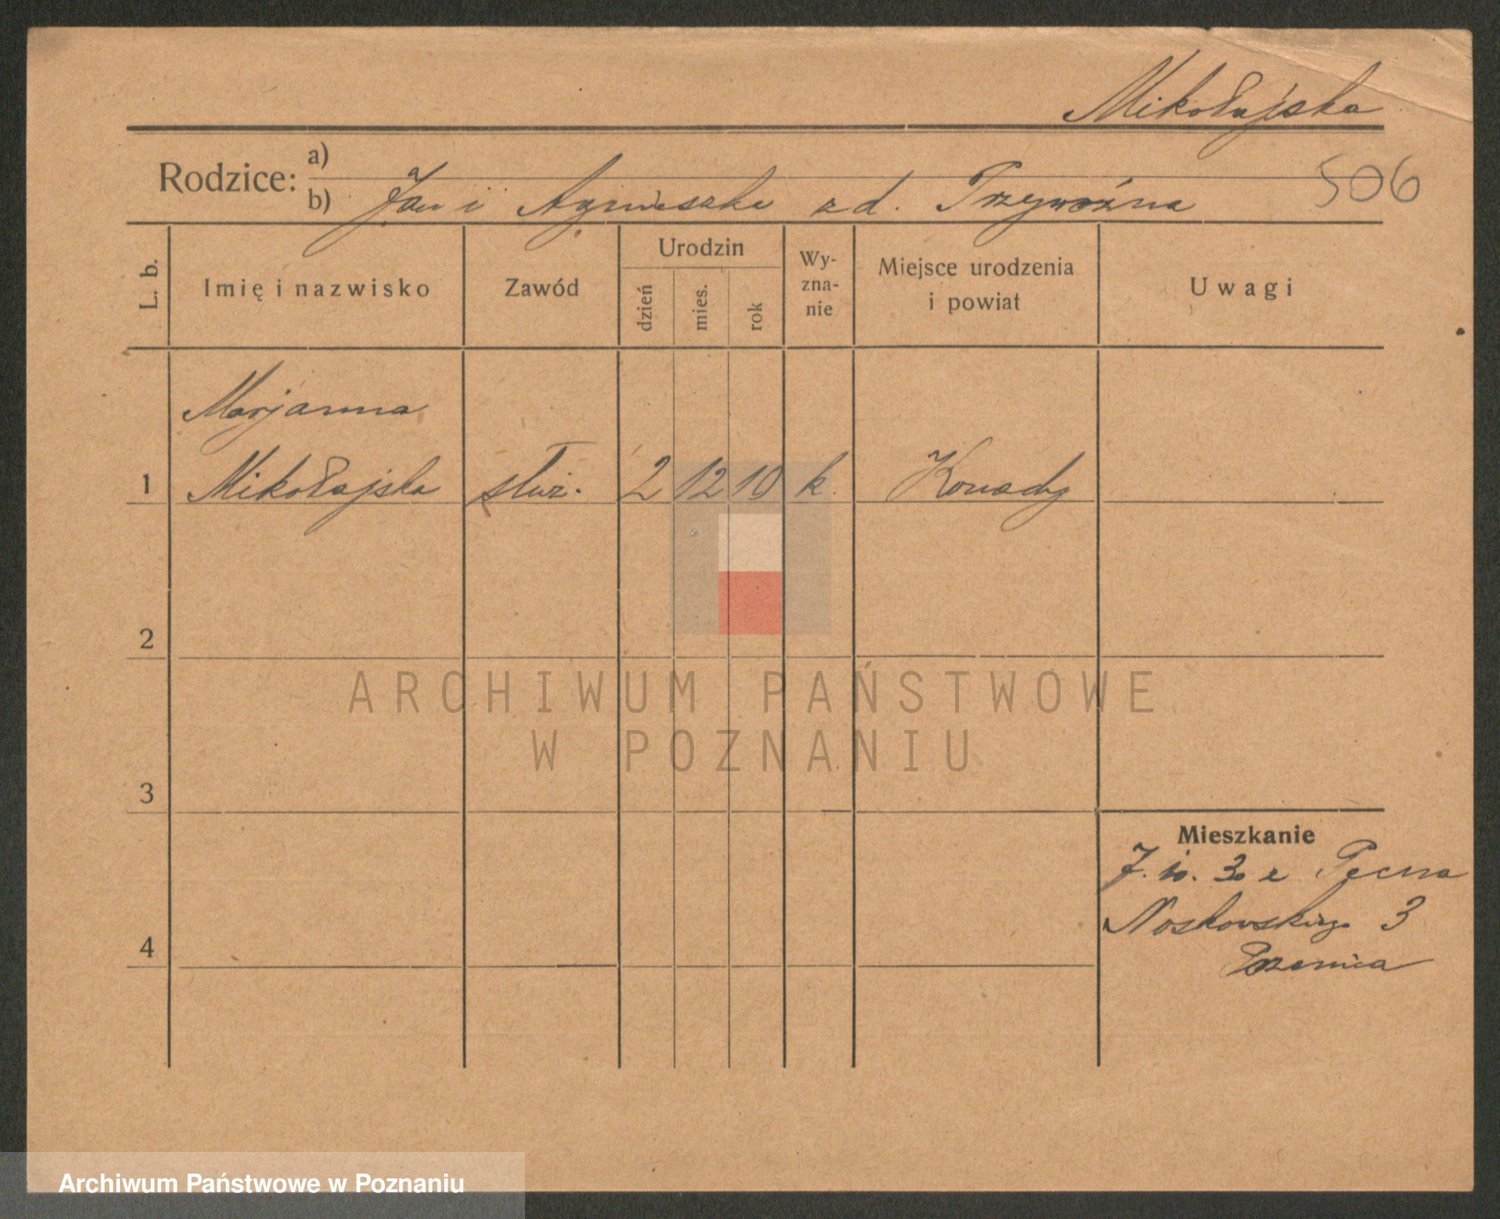 Mikołajska
506
Rodzice: a)
b) Jan i Agnieszka z d. Przywoźna
L. b.
Imię i nazwisko
Zawód
Urodzin
dzień
mies.
rok
Wy-
zna-
nie
Miejsce urodzenia
i powiat
Uwagi
Marjanna
1 Mikołajska służ. 2 12 10 k.
2
3
4
Mieszkanie
Noskowskiego 3
ARCHIWUM PAŃSTWOWE
W POZNANIU
Archiwum Państwowe w Poznaniu